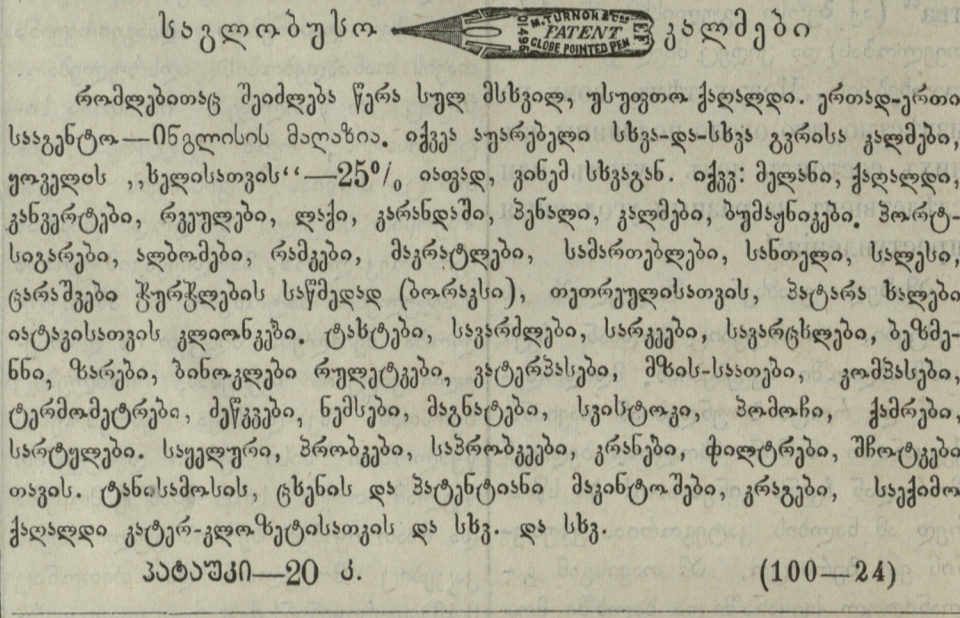 საგლობუსო M. TURNOR & Co. PATENT GLOBE POINTED PEN EF კალმები
რომლებითაც შეიძლება წერა სულ მსხვილ, უსუფთო ქაღალდი. ერთად-ერთი
სააგენტო—ინგლისის მაღაზია. იქვეა აუარებელი სხვა-და-სხვა გვრისა კალმები,
ყოველის ,,ხელისათვის“—25% იაფად, ვინემ სხვაგან. იქვვ: მელანი, ქაღალდი,
კანვერტები, რვეულები, ლაქი, კარანდაში, პენალი, კალმები, ბუმაჟნიკები. პორტ-
სიგარები, ალბომები, რამკები, მაკრატლები, სამართებლები, სანთელი, სალესი,
ცარაშვები ჭურჭლების საწმედად (ბორაკსი), თეთრეულისათვის, პატარა ხალები
იატაკისათვის კლიონკები. ტახტები, სავარძლები, სარკეები, სავარცხლები, ბეზმე-
ნნი, ზარები, ბინოკლები რულეტკები, ვატერპასები, მზის-საათები, კომპასები,
ტერმომეტრები, მეწკვები, ნემსები, მაგნატები, სვისტოკი, პომოჩი, ქამრები,
სარტყლები. საყელური, პრობკები, საპრობკეები, კრანები, ფილტრები, შჩოტკები
თავის. ტანისამოსის, ცხენის და პატენტიანი მაკინტოშები, კრაგები, საექიმო
ქაღალდი კატერ-კლოზეტისათკის და სხვ. და სხვ.
პატაუკი—20 კ. (100—24)